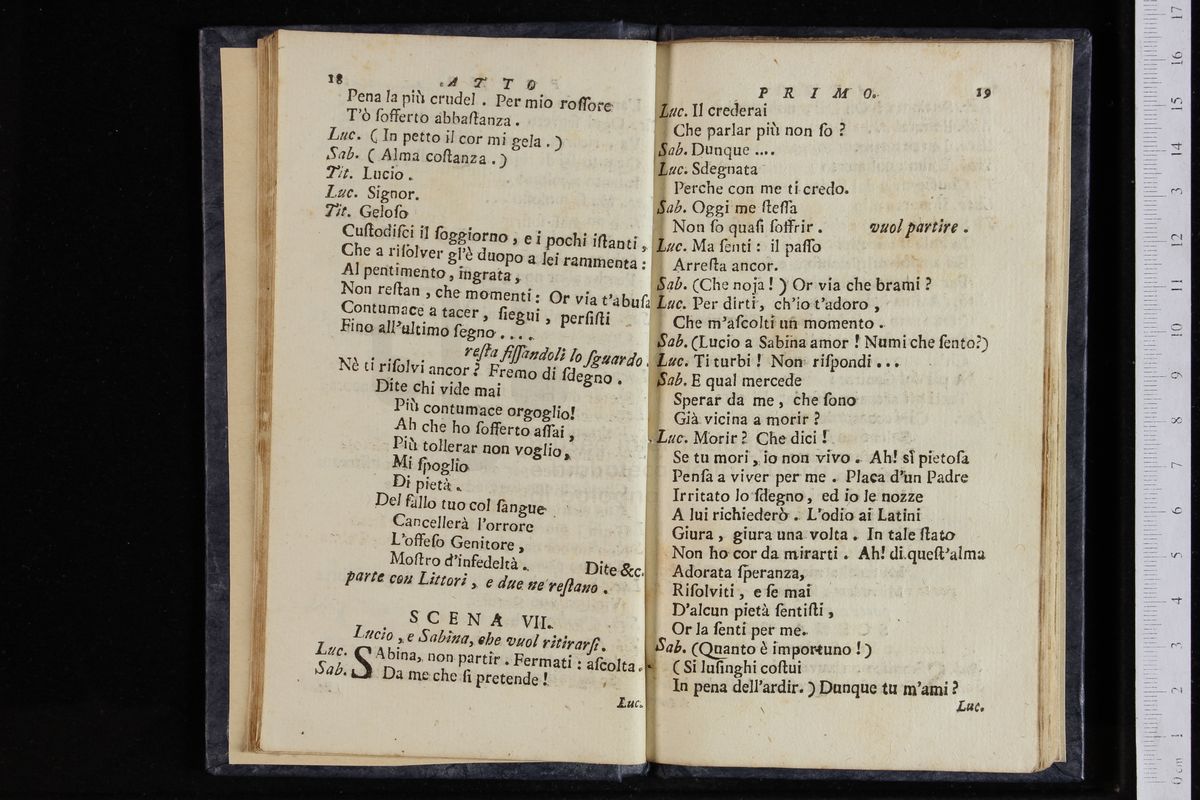 18 ATTO
Pena la più crudel . Per mio roſſore
T'ò ſofferto abbaſtanza .
Luc. ( In petto il cor mi gela . )
Sab. ( Alma coſtanza . )
Tit. Lucio .
Luc. Signor.
Tit. Geloſo
Cuſtodiſci il ſoggiorno , e i pochi iſtanti ,
Che a riſolver gl'è duopo a lei rammenta :
Al pentimento , ingrata ,
Non reſtan , che momenti : Or via t'abuſa
Contumace a tacer , ſiegui , perſiſti
Fino all'ultimo ſegno . . . .
reſta fiſſandoli lo ſguardo .
Nè ti riſolvi ancor ? Fremo di ſdegno .
Dite chi vide mai
Più contumace orgoglio!
Ah che ho ſofferto aſſai ,
Più tollerar non voglio ,
Mi ſpoglio
Di pietà .
Del fallo tuo col ſangue
Cancellerà l'orrore
L'offeſo Genitore ,
Moſtro d'infedeltà . Dite &c.
parte con Littori , e due ne reſtano .
SCENA VII.
Lucio , e Sabina, che vuol ritirarſi.
Luc. SAbina, non partir . Fermati : aſcolta .
Sab. Da me che ſi pretende !
Luc.
PRIMO. 19
Luc. Il crederai
Che parlar più non ſo ?
Sab. Dunque ....
Luc. Sdegnata
Perche con me ti credo.
Sab. Oggi me ſteſſa
Non ſo quaſi ſoffrir . vuol partire .
Luc. Ma ſenti : il paſſo
Arreſta ancor.
Sab. (Che noja ! ) Or via che brami ?
Luc. Per dirti , ch'io t'adoro ,
Che m'aſcolti un momento .
Sab. (Lucio a Sabina amor ! Numi che ſento?)
Luc. Ti turbi ! Non riſpondi ...
Sab. E qual mercede
Sperar da me , che ſono
Già vicina a morir ?
Luc. Morir ? Che dici !
Se tu mori , io non vivo . Ah! sì pietoſa
Penſa a viver per me . Placa d'un Padre
Irritato lo ſdegno , ed io le nozze
A lui richiederò . L'odio ai Latini
Giura , giura una volta . In tale ſtato
Non ho cor da mirarti . Ah! di queſt'alma
Adorata ſperanza,
Riſolviti , e ſe mai
D'alcun pietà ſentiſti ,
Or la ſenti per me.
Sab. (Quanto è importuno ! )
( Si luſinghi coſtui
In pena dell'ardir. ) Dunque tu m'ami ?
Luc.
0 cm 1 2 3 4 5 6 7 8 9 10 11 12 13 14 15 16 17